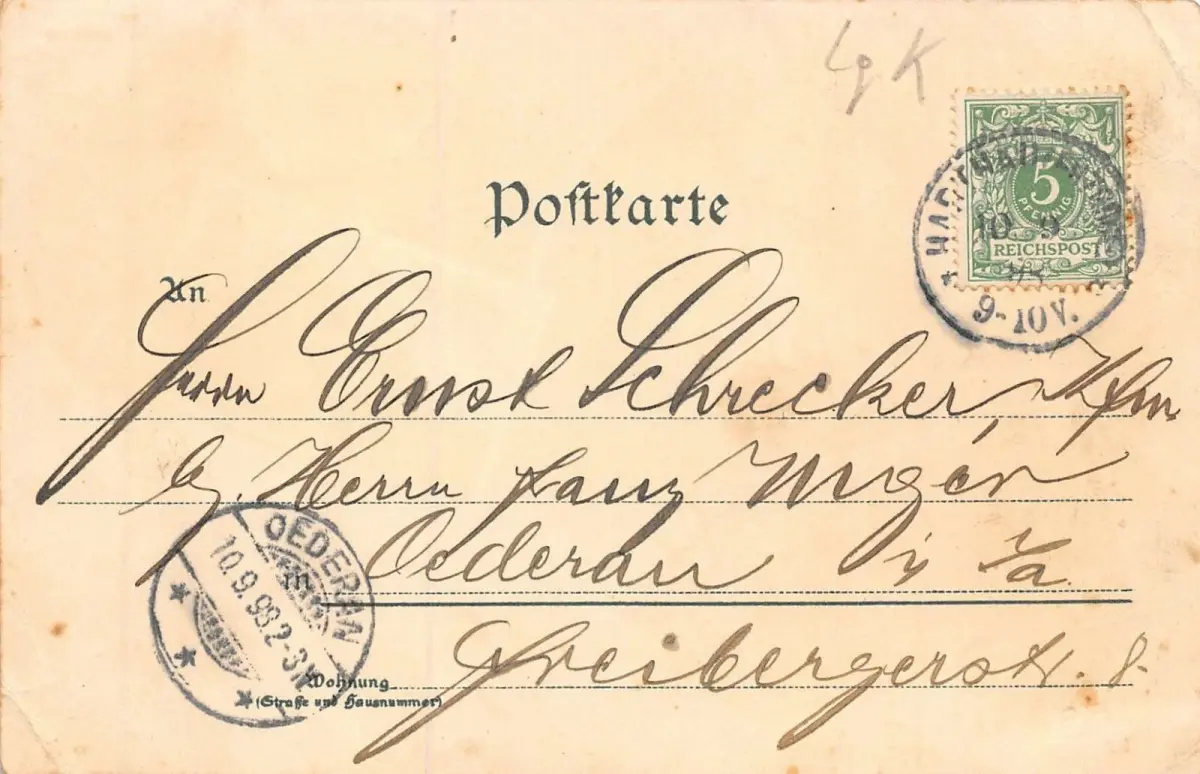 Lg K
Postkarte
5
PFENNIG
REICHSPOST
10 9
9-10V.
An
Herrn Ernst Schrecker, Kfm
b/. Herrn Franz Unger
in Oederan i/Sa
Freibergerstr. 8.
OEDERAN
10.9.98.2-3N.
Wohnung
(Straße und Hausnummer)